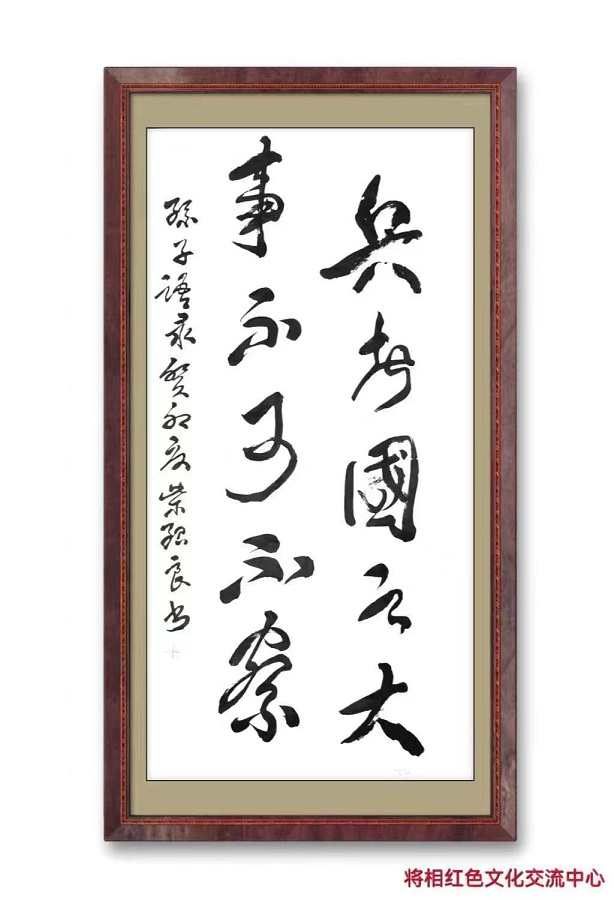 兵者國之大
事不可不察
孫子語录癸卯夏柴紹良书
将相红色文化交流中心